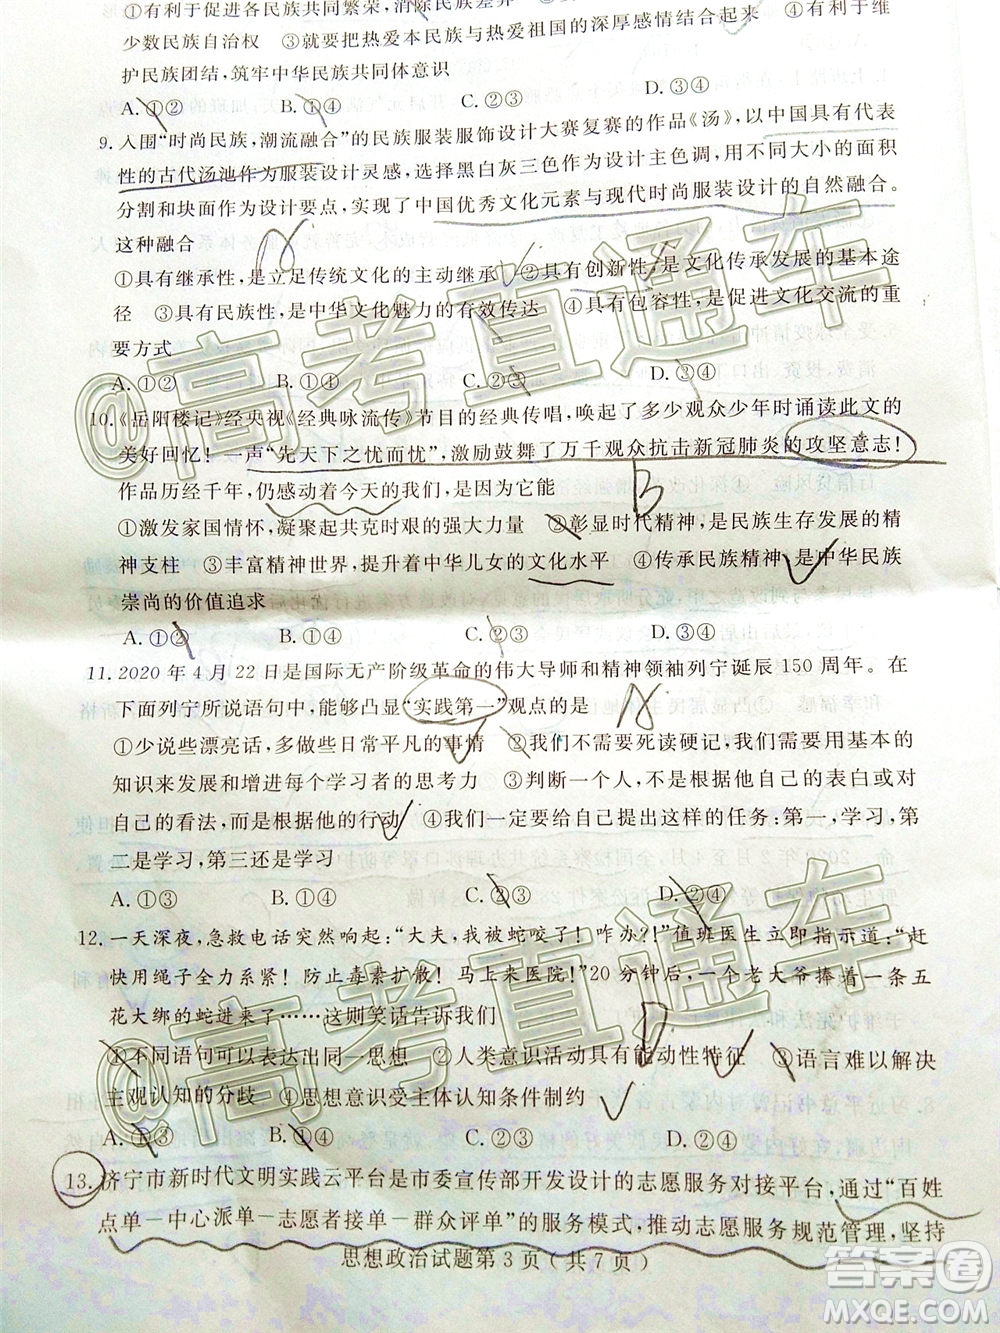 ①有利于促进各民族共同繁荣，消除民族差异
少数民族自治权　③就要把热爱本民族与热爱祖国的深厚感情结合起来　④有利于维
护民族团结，筑牢中华民族共同体意识
A. ①②　B. ①③　C. ②③　D. ③④
9. 入围“时尚民族，潮流融合”的民族服装服饰设计大赛复赛的作品《汤》，以中国具有代表
性的古代汤池作为服装设计灵感，选择黑白灰三色作为设计主色调，用不同大小的面积
分割和块面作为设计要点，实现了中国优秀文化元素与现代时尚服装设计的自然融合。
这种融合
A
①具有继承性，是立足传统文化的主动继承　②具有创新性，是文化传承发展的基本途
径　③具有民族性，是中华文化魅力的有效传达　④具有包容性，是促进文化交流的重
要方式
A. ①②　B. ①④　C. ②③　D. ③④
10.《岳阳楼记》经央视《经典咏流传》节目的经典传唱，唤起了多少观众少年时诵读此文的
美好回忆！一声“先天下之忧而忧”，激励鼓舞了万千观众抗击新冠肺炎的攻坚意志！
作品历经千年，仍感动着今天的我们，是因为它能
B
①激发家国情怀，凝聚起共克时艰的强大力量　②彰显时代精神，是民族生存发展的精
神支柱　③丰富精神世界，提高中华儿女的文化水平　④传承民族精神，是中华民族
崇尚的价值追求
A. ①②　B. ①④　C. ②③　D. ③④
11. 2020 年 4 月 22 日是国际无产阶级革命的伟大导师和精神领袖列宁诞辰 150 周年。在
下面列宁所说语句中，能够凸显“实践第一”观点的是
A
①少说些漂亮话，多做些日常平凡的事情　②我们不需要死读硬记，我们要用基本的
知识来发展和增进每个学习者的思考力　③判断一个人，不是根据他自己的表白或对
自己的看法，而是根据他的行动　④我们一定要给自己提出这样的任务：第一，学习，第
二是学习，第三还是学习
A. ①③　B. ①④　C. ②③　D. ②④
12. 一天深夜，急救电话突然响起：“大夫，我被蛇咬了！咋办?!”值班医生立即指示道：“赶
快用绳子全力系紧！防止毒素扩散！马上来医院！”20 分钟后，一个老大爷捧着一条五
花大绑的蛇进来了……这则笑话告诉我们
D
①不同语句可以表达出同一思想　②人类意识活动具有能动性特征　③语言难以解决
主观认知的分歧　④思想意识受主体认知条件制约
A. ①②　B. ①③　C. ②③　D. ②④
13. 济宁市新时代文明实践云平台是市委宣传部开发设计的志愿服务对接平台，通过“百姓
点单—中心派单—志愿者接单—群众评单”的服务模式，推动志愿服务规范管理，坚持
思想政治试题第 3 页（共 7 页）
@高考直通车
@高考直通车
答案圈
MXQE.COM